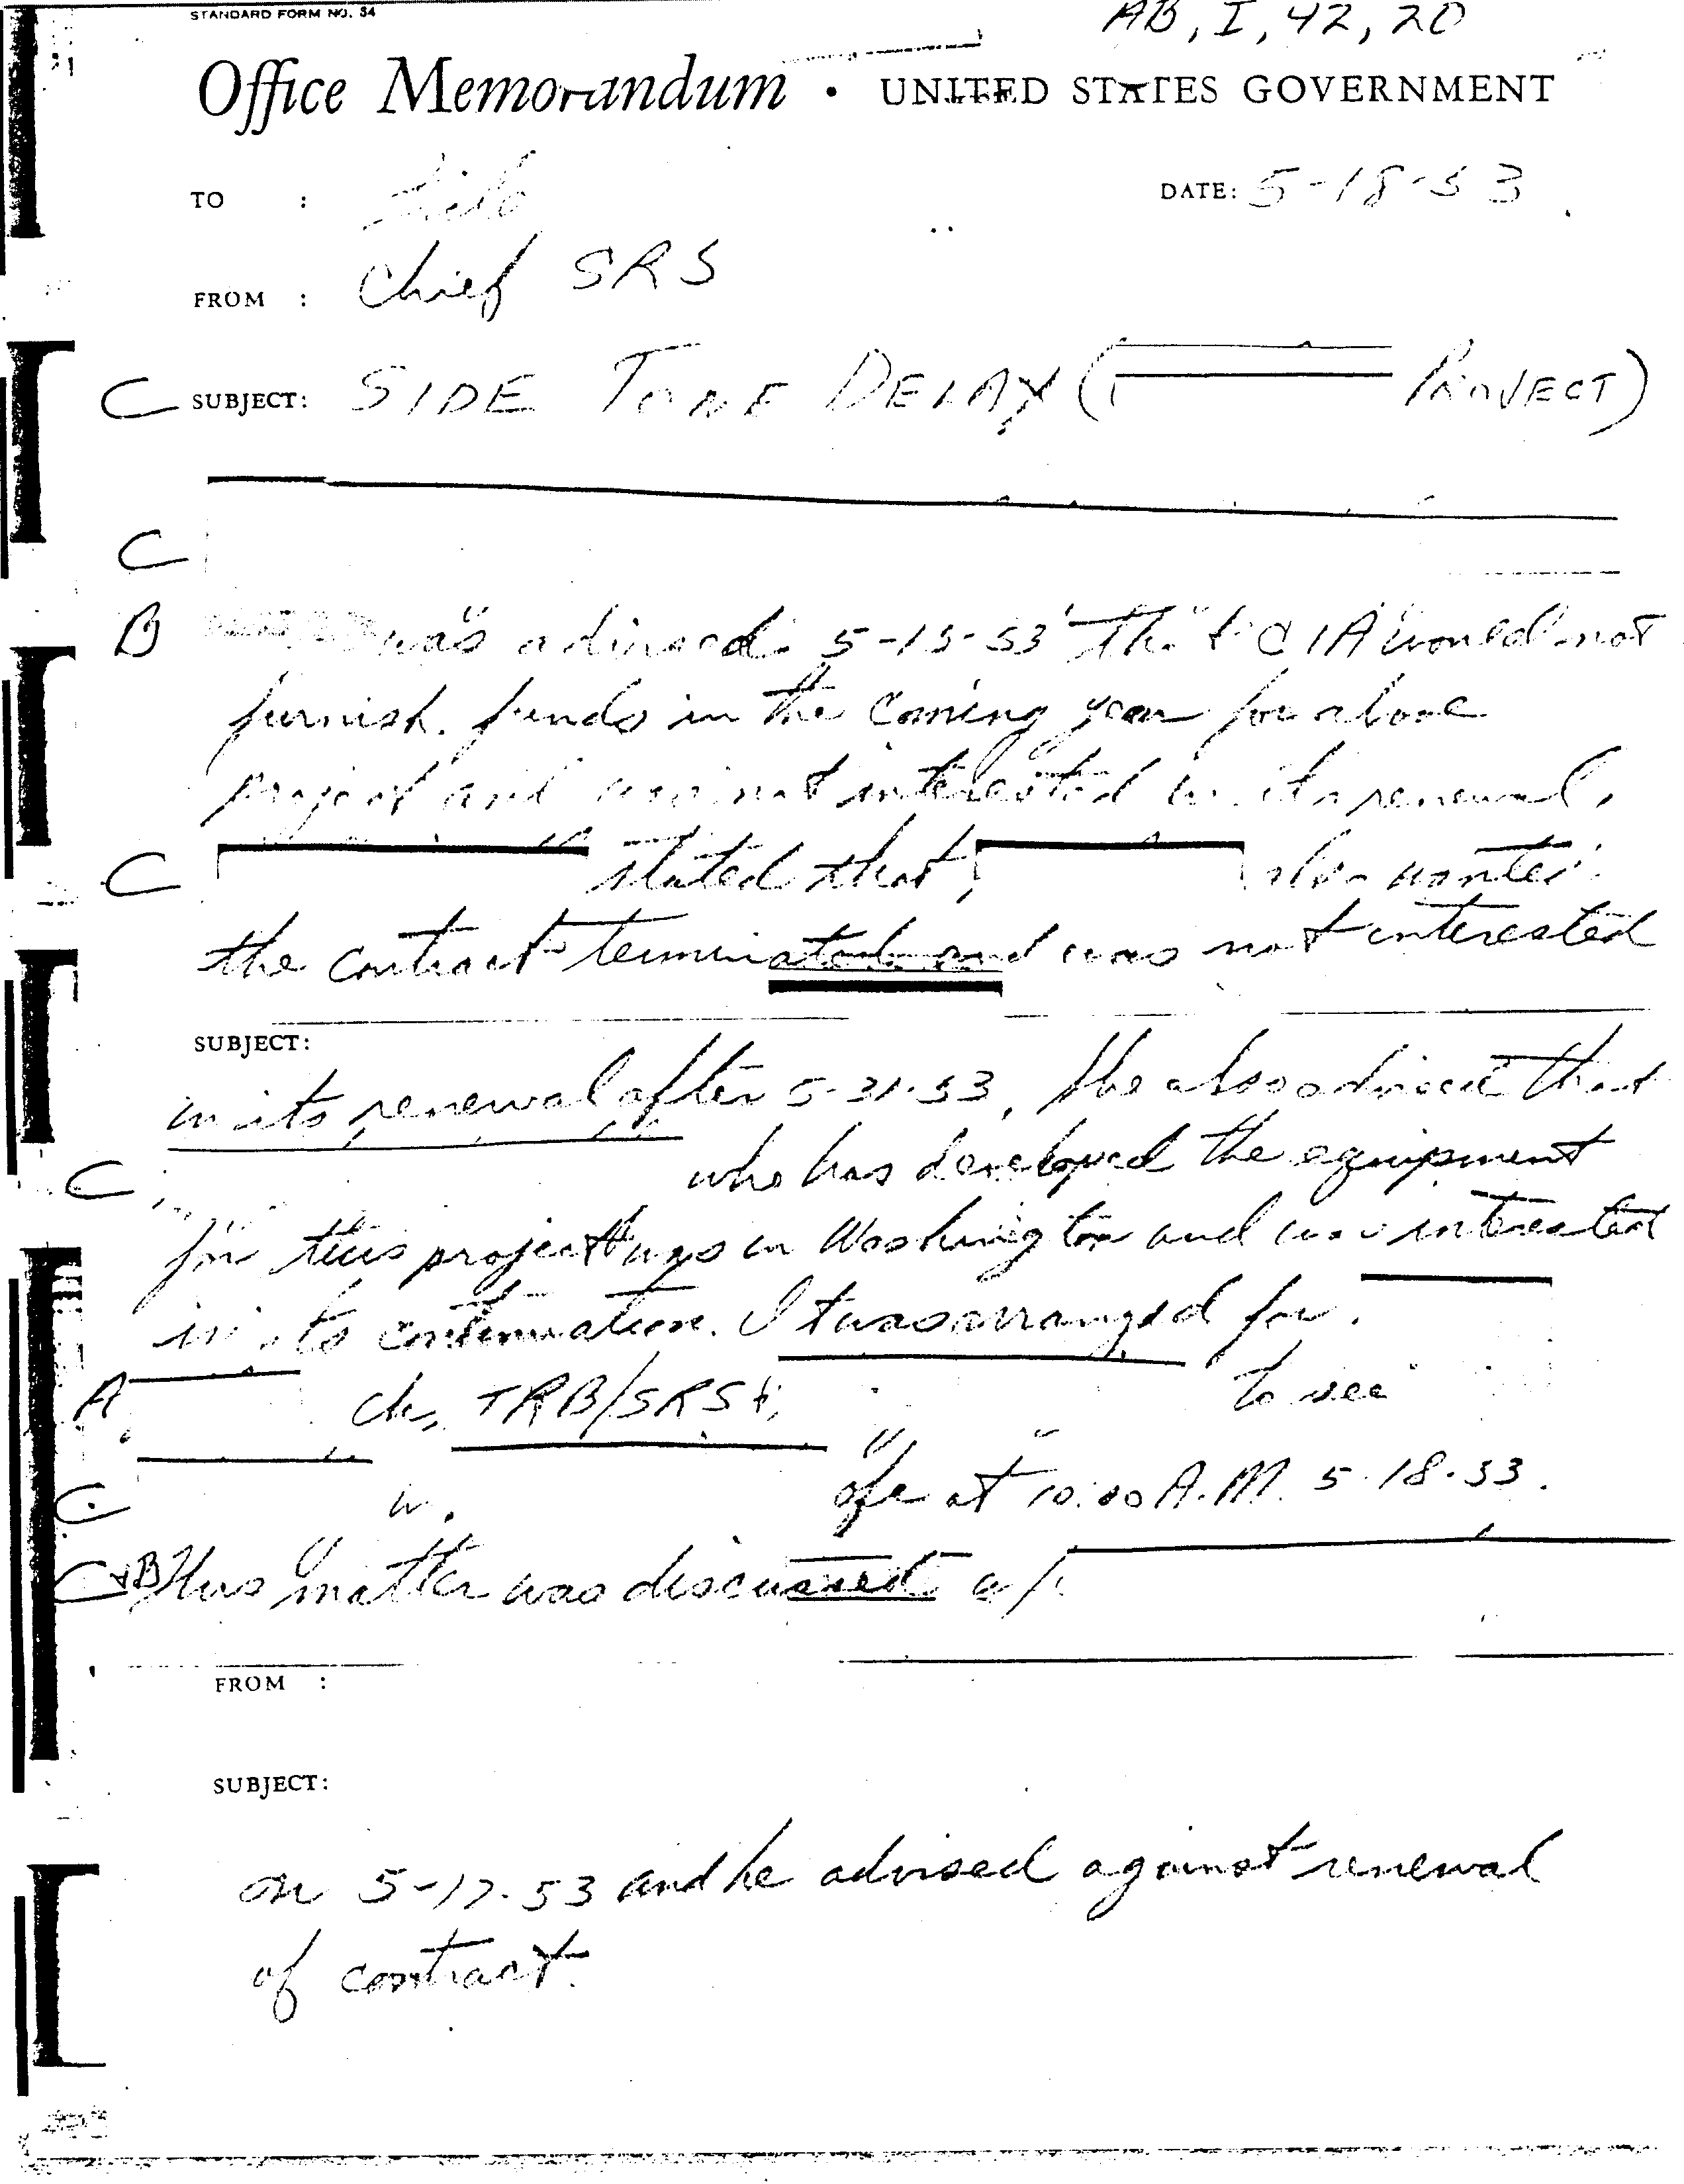 STANDARD FORM NO. 64
AB, I, 42, 20
Office Memorandum • UNITED STATES GOVERNMENT
TO : File
DATE: 5-18-53
FROM : Chief SRS
C SUBJECT: SIDE TONE DELAY ( PROJECT)
C
B was advised 5-15-53 that CIA would not
furnish funds in the coming year for above
project and was not interested in its renewal.
C stated that also wanted
the contract terminated and was not interested
SUBJECT:
in its renewal after 5-31-53. He also advised that
C who has developed the equipment
for this project was in Washington and was interested
in its continuation. It was arranged for
A Ch, TRB/SRS to see
C in ofc at 10:00 A.M. 5-18-53.
C+B This matter was discussed w/
FROM :
SUBJECT:
on 5-17-53 and he advised against renewal
of contract.